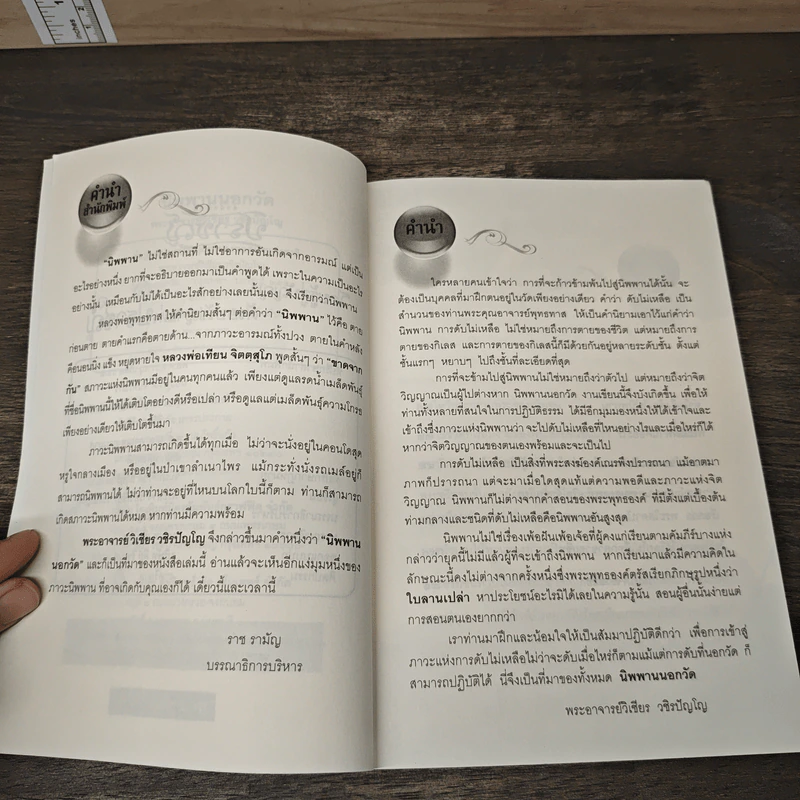 inches
1
2
คำนำ
สำนักพิมพ์
"นิพพาน" ไม่ใช่สถานที่ ไม่ใช่อาการอันเกิดจากอารมณ์ แต่เป็น
อะไรอย่างหนึ่ง ยากที่จะอธิบายออกมาเป็นคำพูดได้ เพราะในความเป็นอะไร
อย่างนั้น เหมือนกับไม่ได้เป็นอะไรสักอย่างเลยนั่นเอง จึงเรียกว่านิพพาน
หลวงพ่อพุทธทาส ให้คำนิยามสั้นๆ ต่อคำว่า "นิพพาน" ไว้คือ ตาย
ก่อนตาย ตายคำแรกคือตายด้าน...จากภาวะอารมณ์ทั้งปวง ตายในคำหลัง
คือนอนนิ่ง แข็ง หยุดหายใจ หลวงพ่อเทียน จิตตสุโภ พูดสั้นๆ ว่า "ขาดจาก
กัน" สภาวะแห่งนิพพานมีอยู่ในคนทุกคนแล้ว เพียงแต่ดูแลรดน้ำเมล็ดพันธุ์
ที่ชื่อนิพพานนี้ให้ได้เติบโตอย่างดีหรือเปล่า หรือดูแลแต่เมล็ดพันธุ์ความโกรธ
เพียงอย่างเดียวให้เติบโตขึ้นมา
ภาวะนิพพานสามารถเกิดขึ้นได้ทุกเมื่อ ไม่ว่าจะนั่งอยู่ในคอนโดสุด
หรูใจกลางเมือง หรืออยู่ในป่าเขาลำเนาไพร แม้กระทั่งนั่งรถเมล์อยู่ก็
สามารถนิพพานได้ ไม่ว่าท่านจะอยู่ที่ไหนบนโลกใบนี้ก็ตาม ท่านก็สามารถ
เกิดสภาวะนิพพานได้หมด หากท่านมีความพร้อม
พระอาจารย์วิเชียร วชิรปัญโญ จึงกล่าวขึ้นมาคำหนึ่งว่า "นิพพาน
นอกวัด" และก็เป็นที่มาของหนังสือเล่มนี้ อ่านแล้วจะเห็นอีกแง่มุมหนึ่งของ
ภาวะนิพพาน ที่อาจเกิดกับคุณเองก็ได้ เดี๋ยวนี้และเวลานี้
ราช รามัญ
บรรณาธิการบริหาร
คำนำ
ใครหลายคนเข้าใจว่า การที่จะก้าวข้ามพ้นไปสู่นิพพานได้นั้น จะ
ต้องเป็นบุคคลที่มาฝึกตนอยู่ในวัดเพียงอย่างเดียว คำว่า ดับไม่เหลือ เป็น
สำนวนของท่านพระคุณอาจารย์พุทธทาส ให้เป็นคำนิยามเอาไว้แก่คำว่า
นิพพาน การดับไม่เหลือ ไม่ใช่หมายถึงการตายของชีวิต แต่หมายถึงการ
ตายของกิเลส และการตายของกิเลสนี้ก็มีด้วยกันอยู่หลายระดับชั้น ตั้งแต่
ชั้นแรกๆ หยาบๆ ไปถึงชั้นที่ละเอียดที่สุด
การที่จะข้ามไปสู่นิพพานไม่ใช่หมายถึงว่าตัวไป แต่หมายถึงว่าจิต
วิญญาณเป็นผู้ไปต่างหาก นิพพานนอกวัด งานเขียนนี้จึงบังเกิดขึ้น เพื่อให้
ท่านทั้งหลายที่สนใจในการปฏิบัติธรรม ได้มีอีกมุมมองหนึ่งให้ได้เข้าใจและ
เข้าถึงซึ่งภาวะแห่งนิพพานว่า จะไปดับไม่เหลือที่ไหนอย่างไรและเมื่อไหร่ก็ได้
หากว่าจิตวิญญาณของตนเองพร้อมและจะเป็นไป
การดับไม่เหลือ เป็นสิ่งที่พระสงฆ์องค์เณรพึงปรารถนา แม้อาตมา
ภาพก็ปรารถนา แต่จะมาเมื่อใดสุดแท้แต่ความพอดีและภาวะแห่งจิต
วิญญาณ นิพพานก็ไม่ต่างจากคำสอนของพระพุทธองค์ ที่มีตั้งแต่เบื้องต้น
ท่ามกลางและชนิดที่ดับไม่เหลือคือนิพพานอันสูงสุด
นิพพานไม่ใช่เรื่องเพ้อฝันเพ้อเจ้อที่ผู้คงแก่เรียนตามคัมภีร์บางแห่ง
กล่าวว่ายุคนี้ไม่มีแล้วผู้ที่จะเข้าถึงนิพพาน หากเรียนมาแล้วมีความคิดใน
ลักษณะนี้คงไม่ต่างจากครั้งหนึ่งซึ่งพระพุทธองค์ตรัสเรียกภิกษุรูปหนึ่งว่า
ใบลานเปล่า หาประโยชน์อะไรมิได้เลยในความรู้นั้น สอนผู้อื่นนั้นง่ายแต่
การสอนตนเองยากกว่า
เราท่านมาฝึกและน้อมใจให้เป็นสัมมาปฏิบัติดีกว่า เพื่อการเข้าสู่
ภาวะแห่งการดับไม่เหลือไม่ว่าจะดับเมื่อไหร่ก็ตามแม้แต่การดับที่นอกวัด ก็
สามารถปฏิบัติได้ นี่จึงเป็นที่มาของทั้งหมด นิพพานนอกวัด
พระอาจารย์วิเชียร วชิรปัญโญ